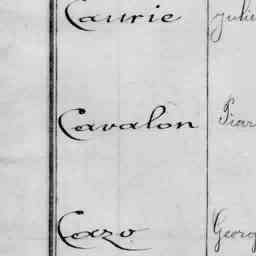 Caurie Julie
Cavalon Piar
Cazo Georg